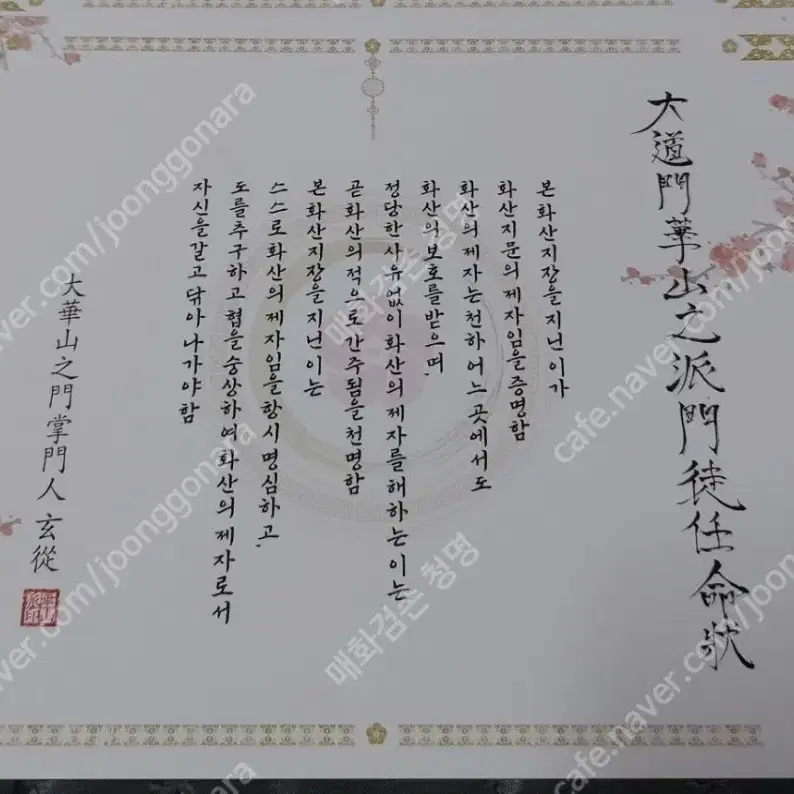 大道門華山之派門徒任命狀
본 화산지장을 지닌 이가
화산지문의 제자임을 증명함
화산의 제자는 천하 어느 곳에서도
화산의 보호를 받으며,
정당한 사유 없이 화산의 제자를 해하는 이는
곧 화산의 적으로 간주됨을 천명함
본 화산지장을 지닌 이는
스스로 화산의 제자임을 항시 명심하고,
도를 추구하고 협을 숭상하여 화산의 제자로서
자신을 갈고 닦아 나가야 함
大華山之門掌門人 玄從
cafe.naver.com/joonggonara
매화검존 청명
cafe.naver.com/joonggonara
매화검존 청명
cafe.naver.com